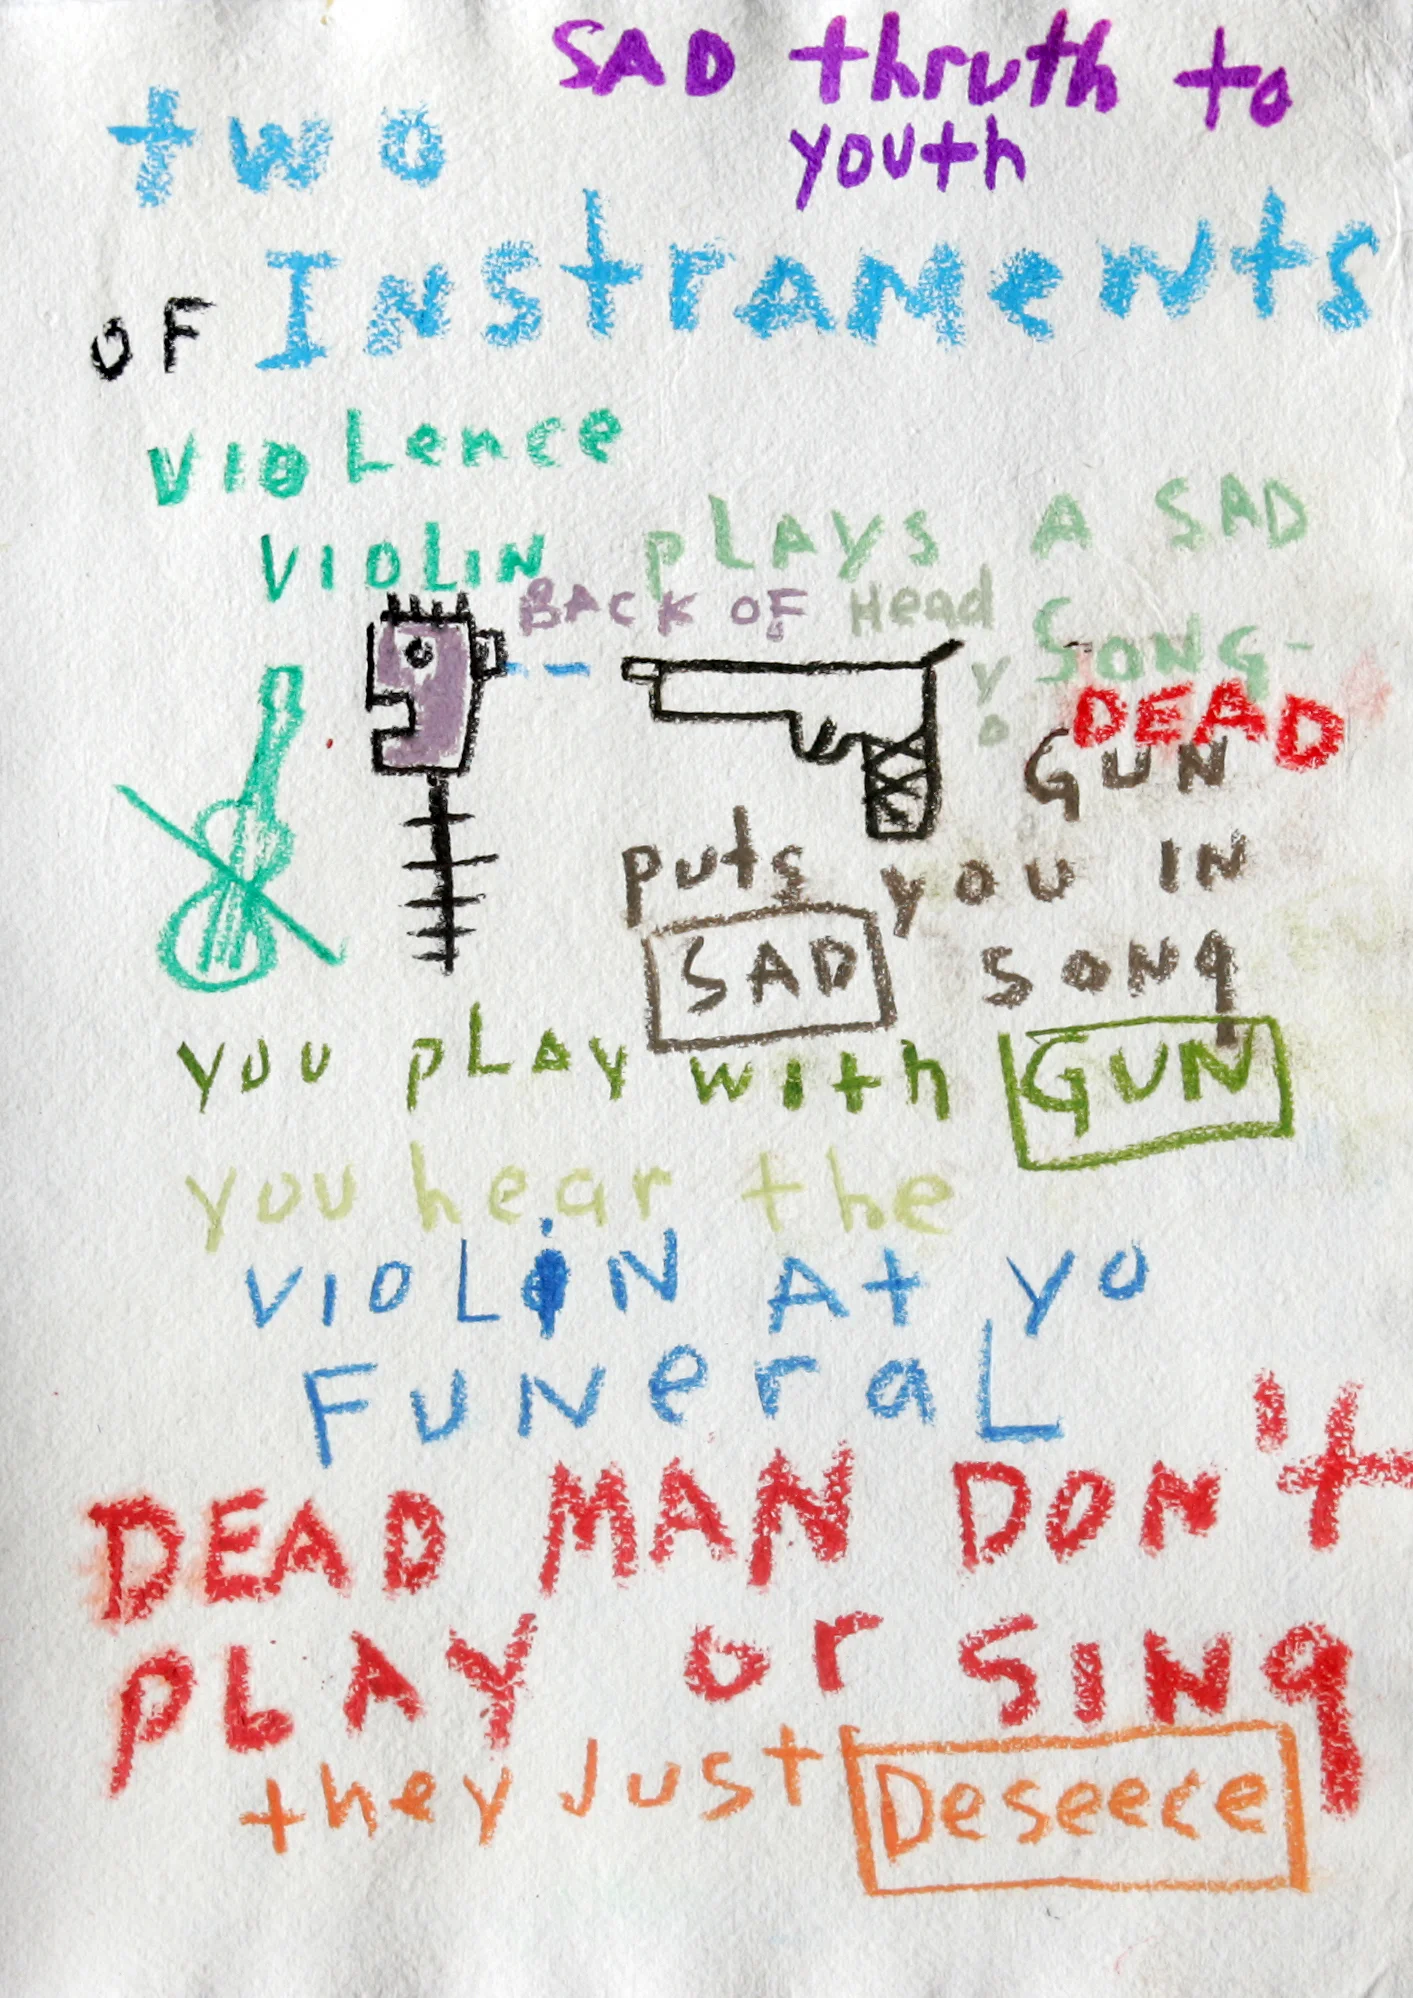 SAD thruth to
youth
two
OF InstrAMeNts
VIOLence
VIOLIN PLAYS A SAD
BACK OF Head
SONG-
yo
DEAD
GUN
puts you IN
SAD SONg
you pLAy with GUN
you hear the
VIOLiN At yo
FUNeraL
DEAD MAN DON't
PLAY or SINg
they Just Deseece